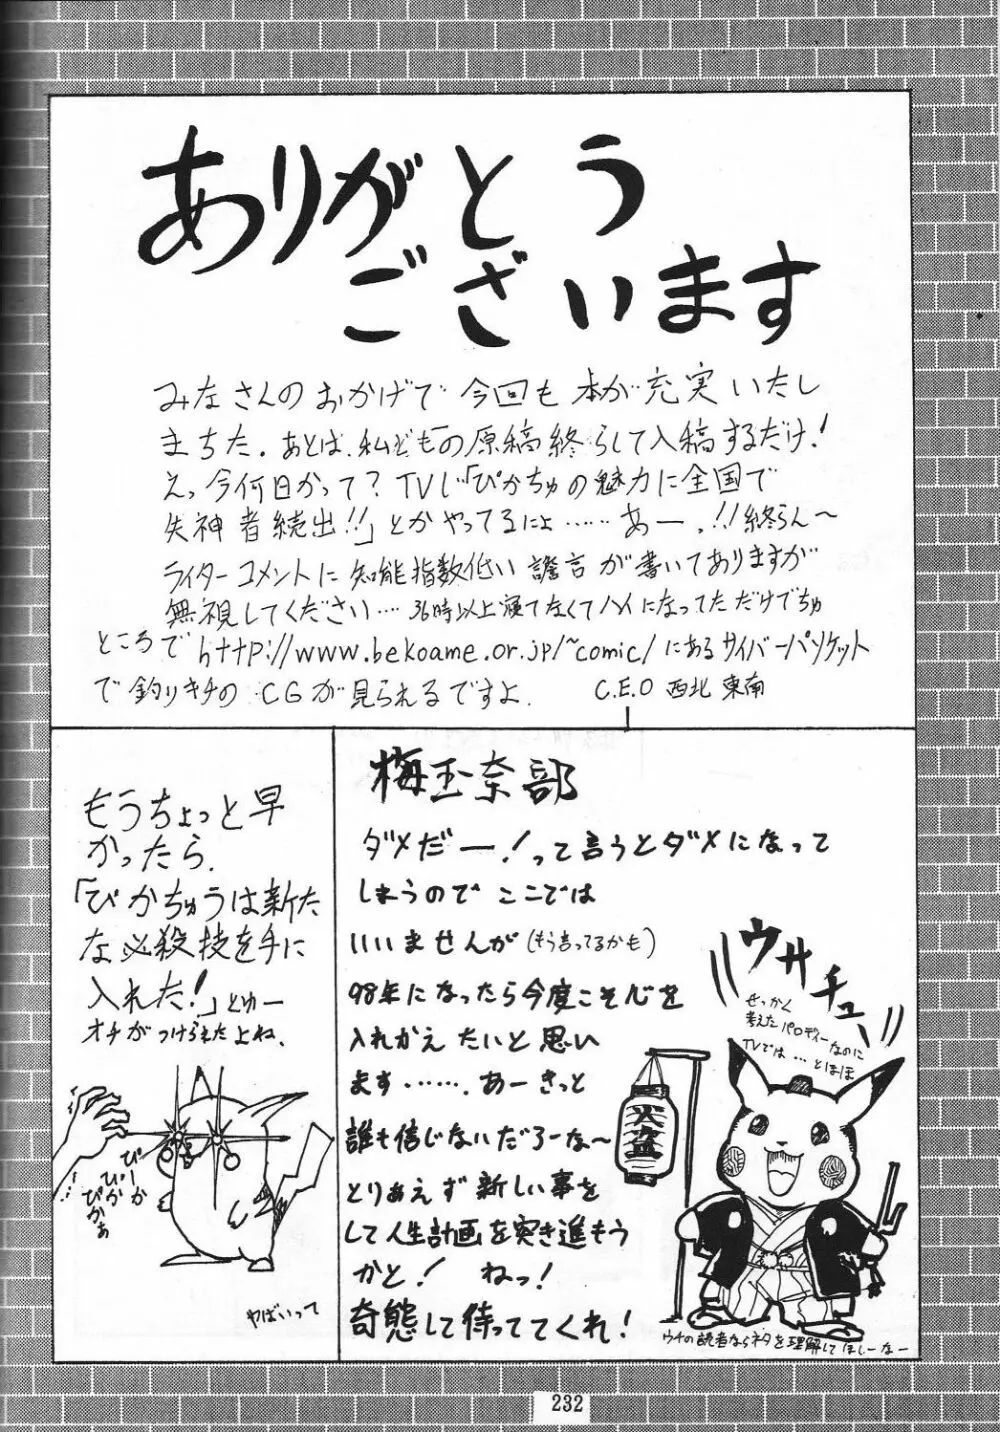 ありがとう
ございます
みなさんのおかげで今回も本が充実いたし
まちた。あとは、私どもの原稿終らして入稿するだけ!
えっ今何日かって?TVじ「ぴかちゅの魅力に全国で
失神者続出!!」とかやってるにょ……あー、!!終らん〜
ライターコメントに知能指数低い譫言が書いてありますが
無視してください…36時以上寝てなくてハイになってただけでちゅ
ところでhttp://www.bekoame.or.jp/~comic/にあるサイバーパンケット
で釣りキチのCGが見られるですよ.
C.E.O 西北 東南
もうちょっと早
かったら.
「ぴかちゅうは新た
な必殺技を手に
入れた!」とゅー
オチがつけられたよね.
びーか
びか
びかぁ
やばいって
梅玉奈部
ダメだー!って言うとダメになって
しまうのでここでは
いいませんが(もう言ってるかも)
98年になったら今度こそ心を
入れかえたいと思い
ます……. あーきっと
誰も信じないだろーな〜
とりあえず新しい事を
して人生計画を突き進もう
かと! ねっ!
奇態して待っててくれ!
ウサチュー
せっかく
考えたパロディーなのに
TVでは…とほほ
火盗
ウチの読者ならネタを理解してほしーなー
232